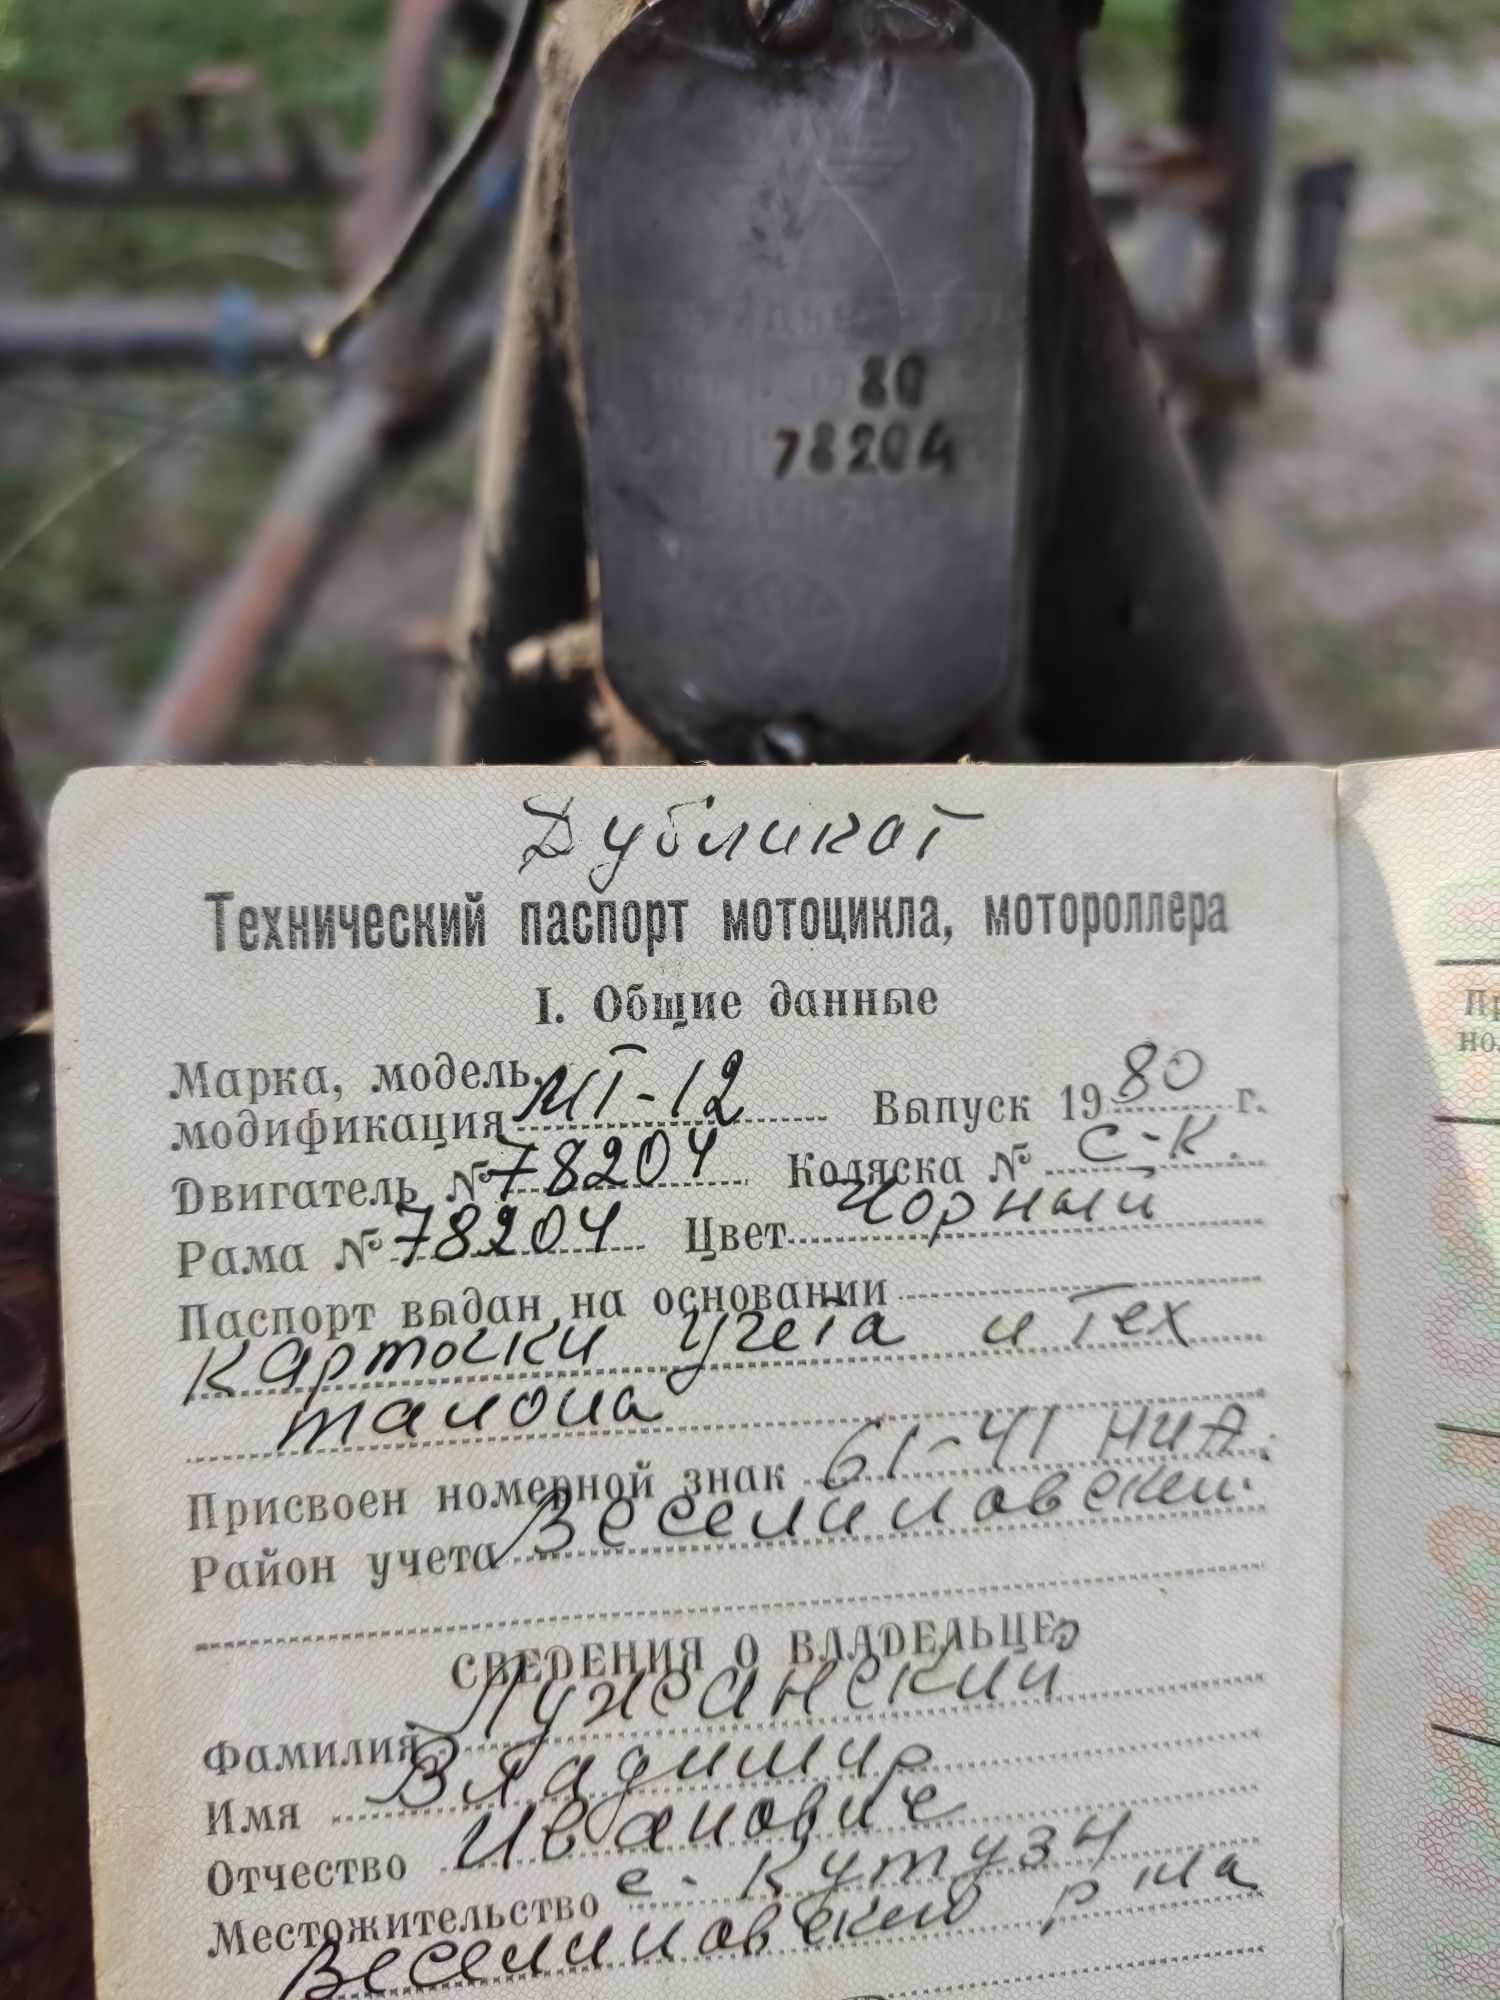 80
78204
Дубликат
Технический паспорт мотоцикла, мотороллера
I. Общие данные
Марка, модель,
модификация МТ-12 Выпуск 1980 г.
Двигатель № 78204 Коляска № С-К.
Рама № 78204 Цвет Чорный
Паспорт выдан на основании
карточки учета и тех
талона
Присвоен номерной знак 61-41 НИА.
Район учета Веселиновский.
СВЕДЕНИЯ О ВЛАДЕЛЬЦЕ
Фамилия Лужанский
Имя Владимир
Отчество Иванович
Местожительство с.
Веселиновского р на